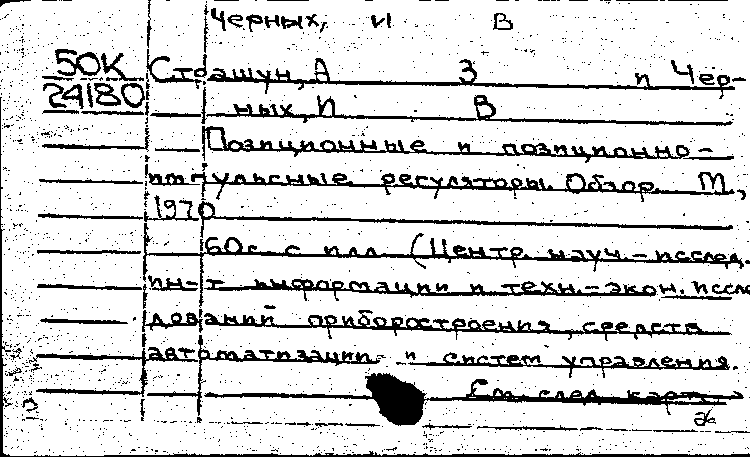 Черных, И В
50К Страшун, А З и Чер-
24180 ных, И В
Позиционные и позиционно-
импульсные регуляторы. Обзор. М.,
1970
60с. с илл (Центр. науч.-исслед.
ин-т информации и техн.-экон. иссле
дований приборостроения, средств
автоматизации и систем управления.
См. след. карт.